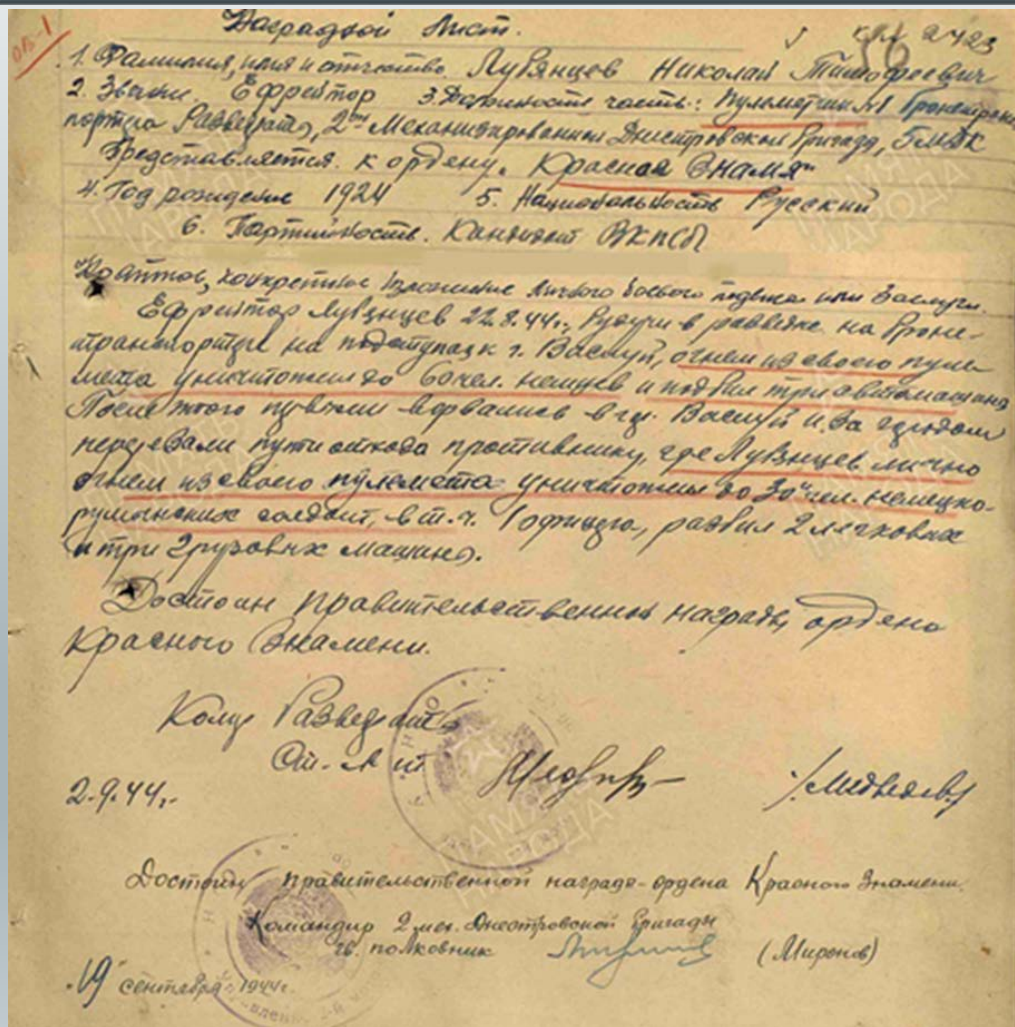 Наградной Лист.
1. Фамилия, имя и отчество Лубянцев Николай Тимофеевич
2. Звание Ефрейтор 3. Должность часть: Пулеметчик №1 Бронетранс
портера Разведроты, 2ой Механизированной Днестровской Бригады, 5 МЕК
Представляется к ордену "Красная Знамя"
4. Год рождения 1924 5. Национальность Русский
6. Партийность. Кандидат ВКП(б)
конкретное изложение личного боевого подвига или заслуги.
Ефрейтор Лубянцев 22.8.44г., Будучи в разведке на Броне-
транспортере на подступах к г. Васлуй, огнем из своего пуле
мета уничтожил до 60 чел. немцев и подбил три автомашины
После этого первыми ворвались в гор. Васлуй и за городом
перерезали пути отхода противнику, где Лубянцев лично
огнем из своего пулемета уничтожил до 30 чел. немецко-
румынских солдат, в т.ч. 1 офицера, разбил 2 легковых
и три грузовых машины.
Достоин правительственной награды, ордена
Красного Знамени.
Разведроты
Ст. л-т /Медведев/
2.9.44г.
Достоин правительственной награды - ордена Красного Знамени.
Командир 2 мех. Днестровской бригады
гв. полковник (Миронов)
"19" сентября 1944г.